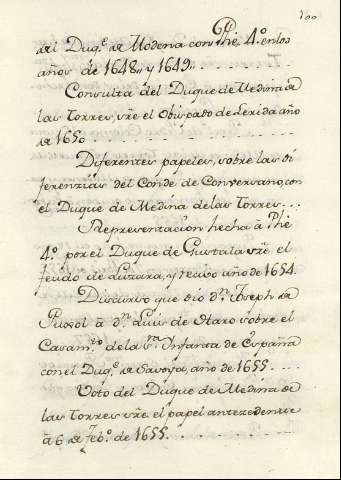 100
del Duq.e de Modena con Phe 4.º en los
años de 1648,, y 1649,,
Consulta del Duque de Medina de
las Torres, sre el Obispado de Lerida año
de 1650
Diferentes papeles, sobre las di
ferenzias del Conde de Conversano, con
el Duque de Medina de las Torres...
Representacion hecha à Phe
4.º por el Duque de Gustala sre el
feudo de Luzara, y año de 1654
Discurso que dio d.n Joseph de
Pujol à d.n Luis de Haro sobre el
Casam.to de la s.ra Infanta de España
con el Duq.e de Savoya, año de 1655
Voto del Duque de Medina de
las Torres sre el papel antezedente
à 6 de feb.o de 1655